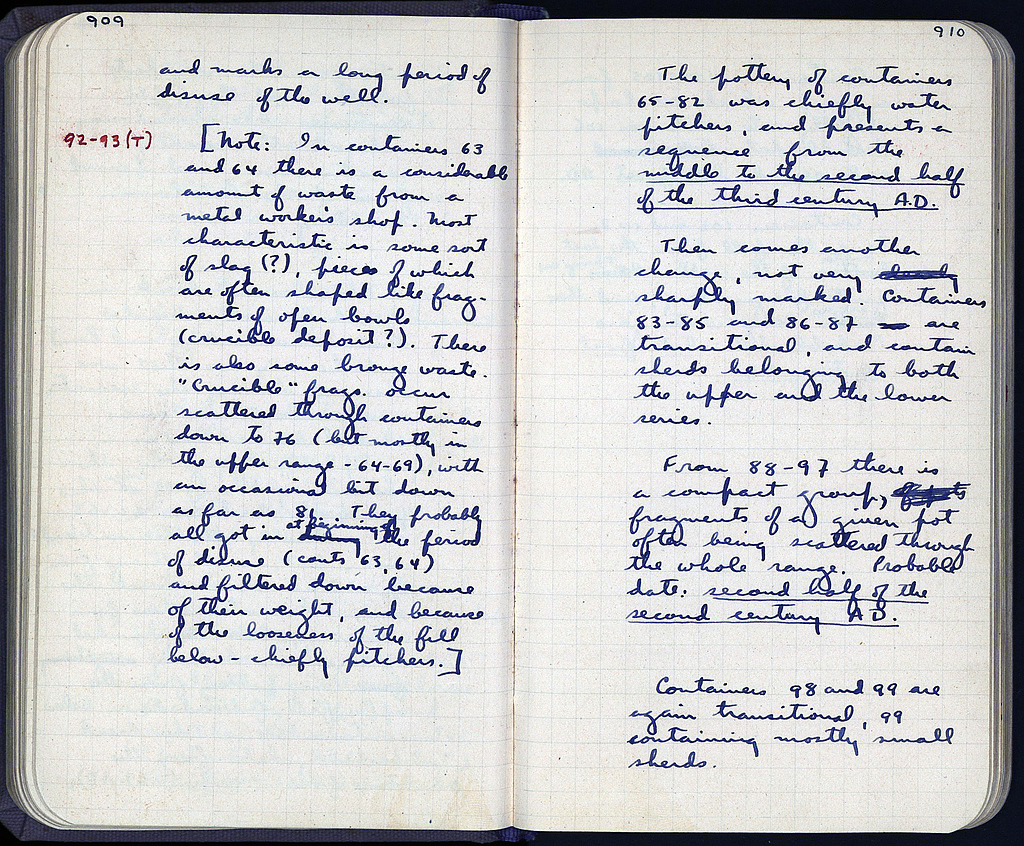 909
and marks a long period of
disuse of the well.
92-93 (T)
[Note: In containers 63
and 64 there is a considerable
amount of waste from a
metal worker's shop. Most
characteristic is some sort
of slag (?), pieces of which
are often shaped like frag-
ments of open bowls
(crucible deposit?). There
is also some bronze waste.
"Crucible" frags. occur
scattered through containers
down to 76 (but mostly in
the upper range - 64-69), with
an occasional bit down
as far as 81. They probably
all got in at beginning of the period
of disuse (conts 63, 64)
and filtered down because
of their weight, and because
of the looseness of the fill
below - chiefly pitchers.]
910
The pottery of containers
65-82 was chiefly water
pitchers, and presents a
sequence from the
middle to the second half
of the third century A.D.
Then comes another
change, not very
sharply marked. Containers
83-85 and 86-87 are
transitional, and contain
sherds belonging to both
the upper and the lower
series.
From 88-97 there is
a compact group,
fragments of a given pot
often being scattered through
the whole range. Probable
date: second half of the
second century A.D.
Containers 98 and 99 are
again transitional, 99
containing mostly small
sherds.